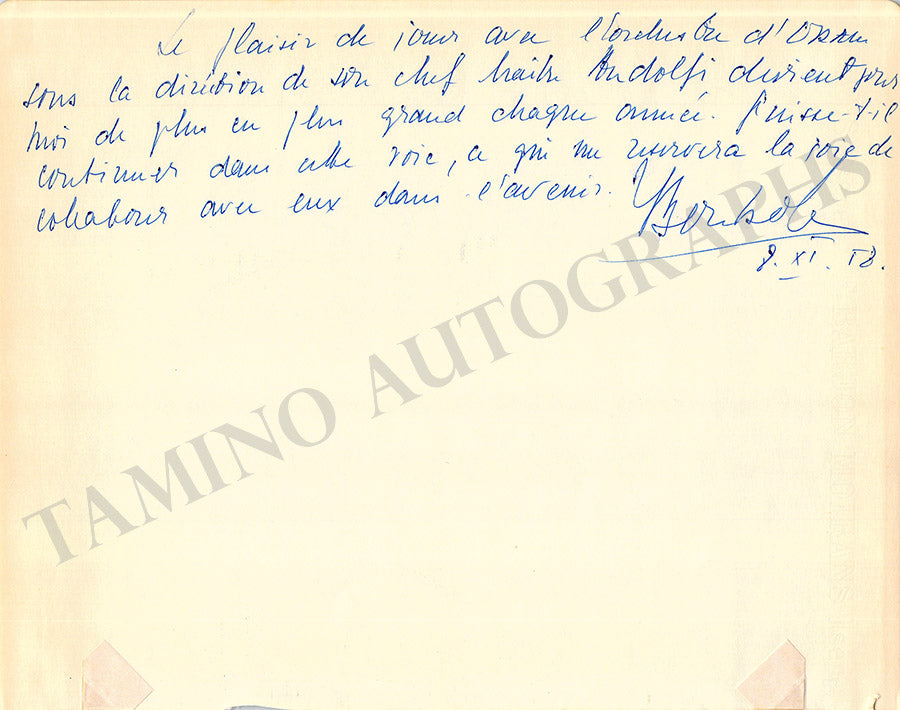 Le plaisir de jouer avec l'orchestre d'OSSEM
sous la direction de son chef Maître Andolfi devient pour
moi de plus en plus grand chaque année. Puisse-t-il
continuer dans cette voie, ce qui me reservera la joie de
collaborer avec eux dans l'avenir.
8. XI. 52.
TAMINO AUTOGRAPHS